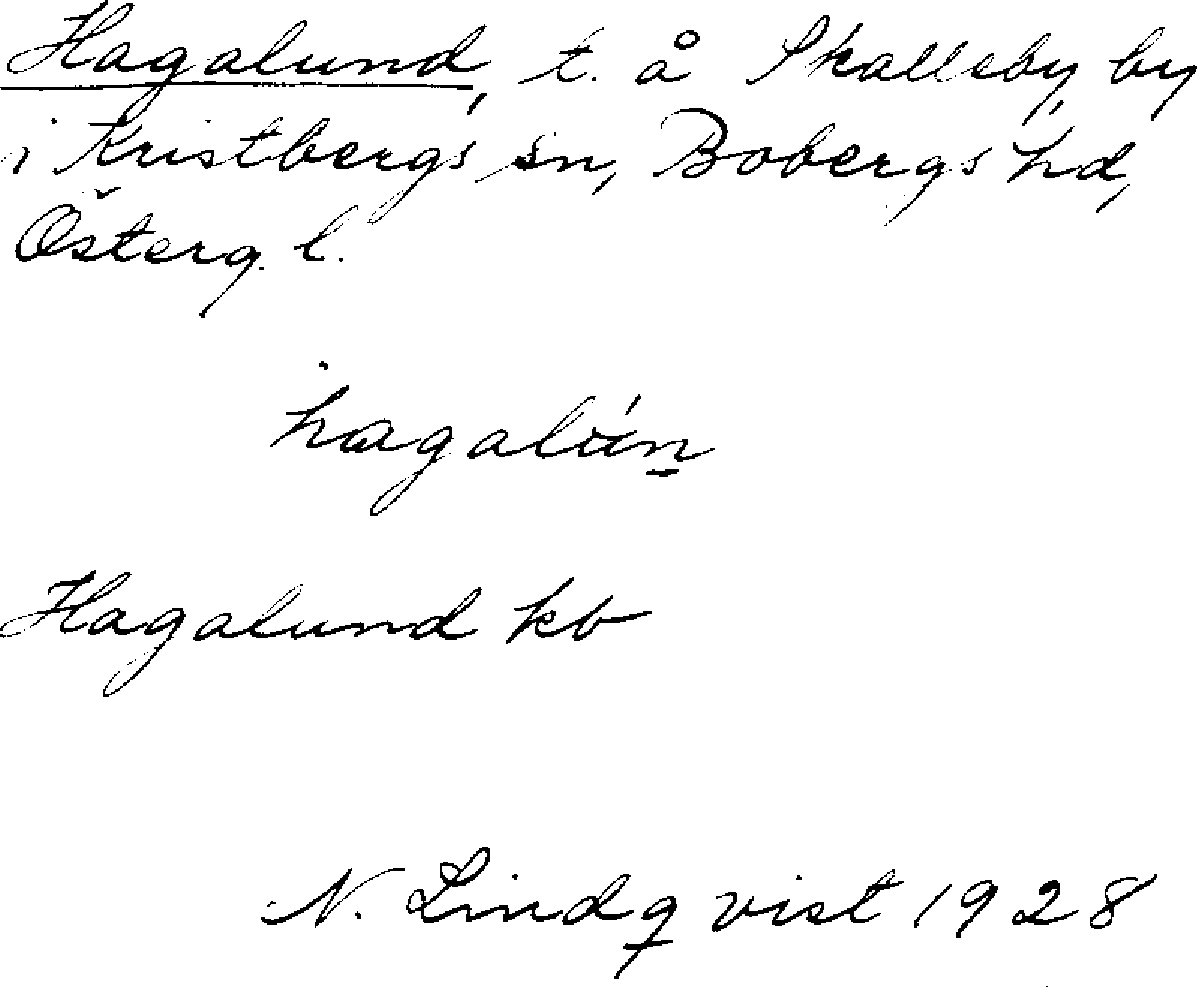 Hagalund, t. å Skalleby by
i Kristbergs sn, Bobergs hd,
Österg. l.
hagalún
Hagalund kb
N. Lindqvist 1928